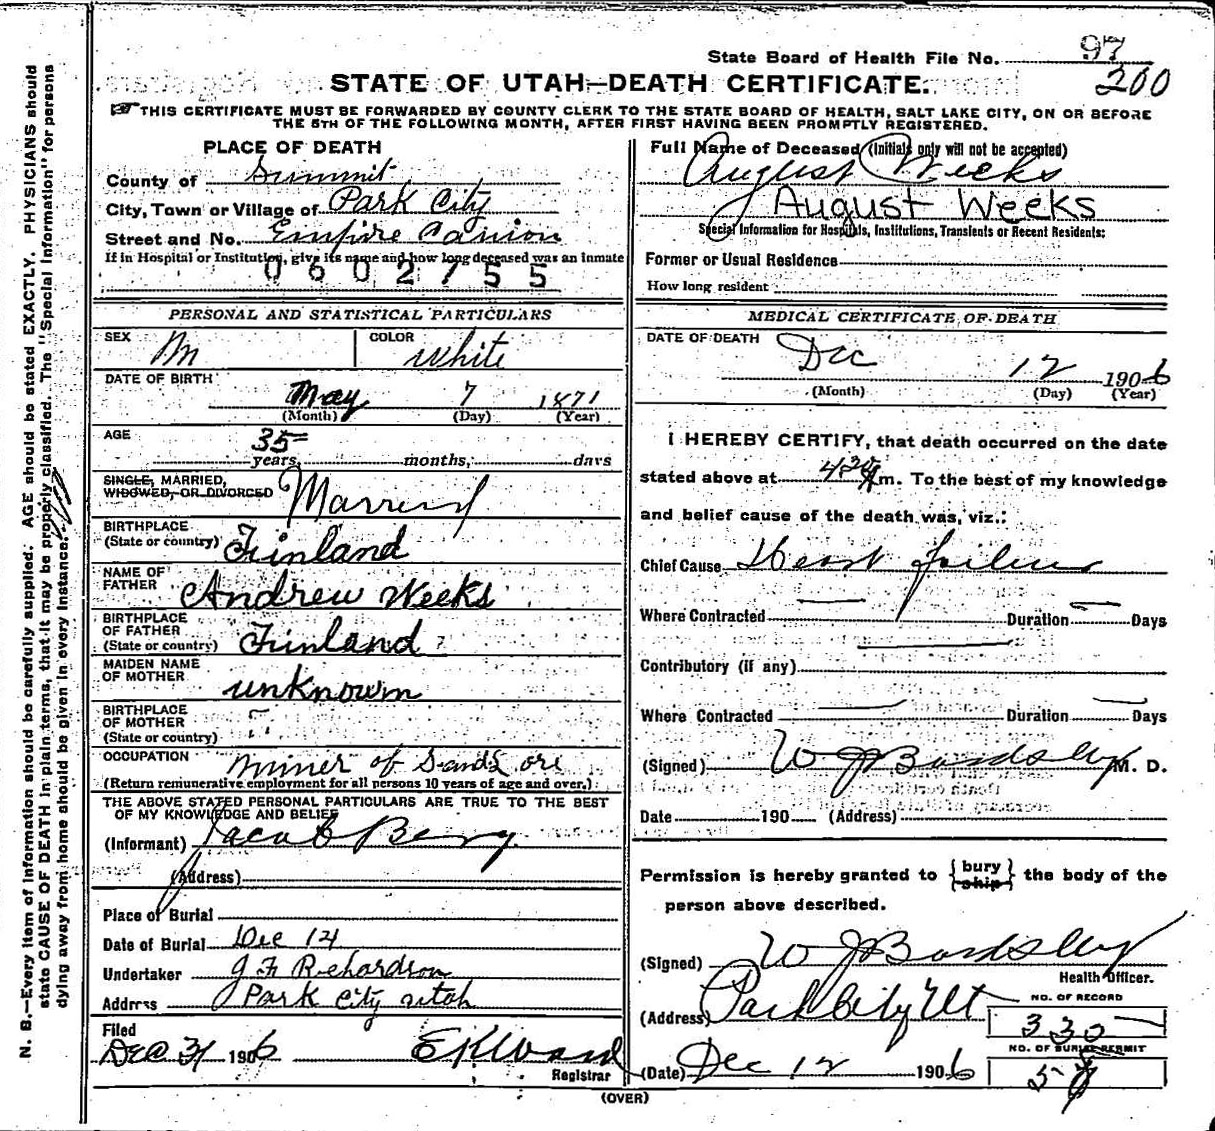 State Board of Health File No. 97
200
STATE OF UTAH—DEATH CERTIFICATE.
THIS CERTIFICATE MUST BE FORWARDED BY COUNTY CLERK TO THE STATE BOARD OF HEALTH, SALT LAKE CITY, ON OR BEFORE
THE 5TH OF THE FOLLOWING MONTH, AFTER FIRST HAVING BEEN PROMPTLY REGISTERED.
N. B.—Every item of information should be carefully supplied. AGE should be stated EXACTLY. PHYSICIANS should
state CAUSE OF DEATH in plain terms, that it may be properly classified. The "Special Information" for persons
dying away from home should be given in every instance.
PLACE OF DEATH
County of Summit
City, Town or Village of Park City
Street and No. Empire Canion
If in Hospital or Institution, give its name and how long deceased was an inmate
0602755
PERSONAL AND STATISTICAL PARTICULARS
SEX M COLOR White
DATE OF BIRTH
May 7 1871
(Month) (Day) (Year)
AGE
35 years, months, days
SINGLE, MARRIED,
WIDOWED, OR DIVORCED Married
BIRTHPLACE
(State or country) Finland
NAME OF
FATHER Andrew Weeks
BIRTHPLACE
OF FATHER
(State or country) Finland
MAIDEN NAME
OF MOTHER unknown
BIRTHPLACE
OF MOTHER
(State or country)
OCCUPATION Miner of S and L ore
(Return remunerative employment for all persons 10 years of age and over.)
THE ABOVE STATED PERSONAL PARTICULARS ARE TRUE TO THE BEST
OF MY KNOWLEDGE AND BELIEF
(Informant) Jacob Berg
(Address)
Place of Burial
Date of Burial Dec 14
Undertaker J F Richardson
Address Park City Utah
Filed
Dec 31 1906
Registrar
Full Name of Deceased (Initials only will not be accepted)
August Weeks
August Weeks
Special Information for Hospitals, Institutions, Transients or Recent Residents:
Former or Usual Residence
How long resident
MEDICAL CERTIFICATE OF DEATH
DATE OF DEATH
Dec 12 1906
(Month) (Day) (Year)
I HEREBY CERTIFY, that death occurred on the date
stated above at 4 30 m. To the best of my knowledge
and belief cause of the death was, viz.:
Chief Cause Heart failure
Where Contracted Duration Days
Contributory (if any)
Where Contracted Duration Days
(Signed) W J Bardsley M. D.
Date 190 (Address)
Permission is hereby granted to { bury ship } the body of the
person above described.
(Signed) W J Bardsley
Health Officer.
(Address) Park City Ut
NO. OF RECORD
330
NO. OF BURIAL PERMIT
(Date) Dec 12 1906
(OVER)